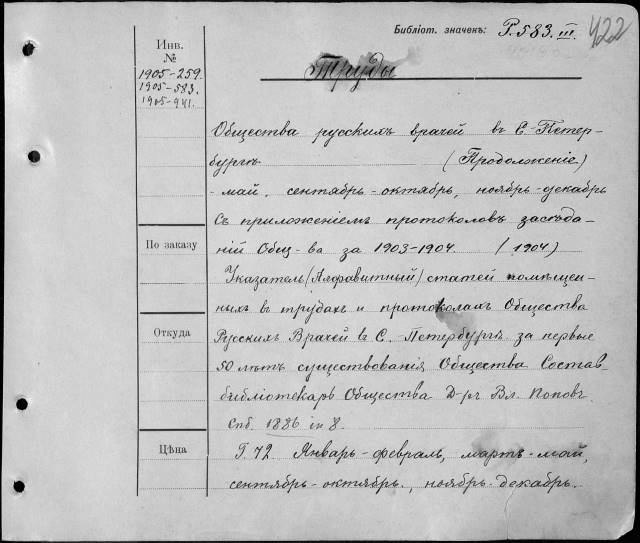 Библіот. значекъ: P.583.III. 422
Инв. №
1905-259.
1905-583.
1905-941.
Труды
Общества русскихъ врачей въ С-Петер-
бургѣ (Продолженіе)
-май, сентябрь-октябрь, ноябрь-декабрь
Съ приложеніемъ протоколовъ засѣда-
ній Общ-ва за 1903-1904. (1904)
По заказу
Указатель (Алфавитный) статей помѣщен-
ныхъ въ трудахъ и протоколахъ Общества
Русскихъ Врачей въ С. Петербургѣ за первые
Откуда
50 лѣтъ существованія Общества Состав.
библіотекарь Общества Д-ръ Вл. Поповъ.
Спб. 1886 in 8.
Цѣна
Г. 72 Январь-февраль, мартъ-май,
сентябрь-октябрь, ноябрь-декабрь.